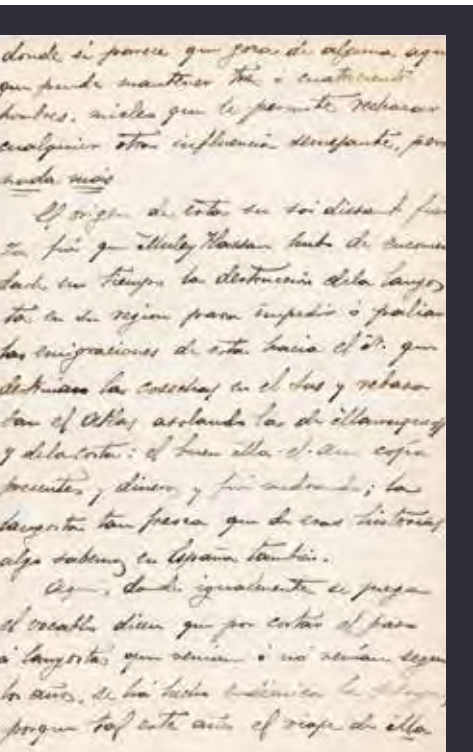 donde si parece que goza de alguna
que puede mantener tres ó cuatrocientos
hombres, núcleo que le permite rechazar
cualquier otra influencia semejante, pero
nada más
El origen de esta su soi disant
fué que Muley Hassan hubo de
darle en tiempos la destrucción de la langos
ta en su region para impedir ó paliar
las emigraciones de esta hacia el N. que
las cosechas en el Sus y
ban el Atlas asolando las de
y de la costa: el buen
presentes, dinero, y fué; la
langosta tan fresca que de esas historias
algo sabemos en España tambien.
Aqui, donde igualmente se
el vocablo dicen que por cortar el paso
á langostas que venian ó nó venian segun
los años, se ha hecho la
porque tal este año el viaje de